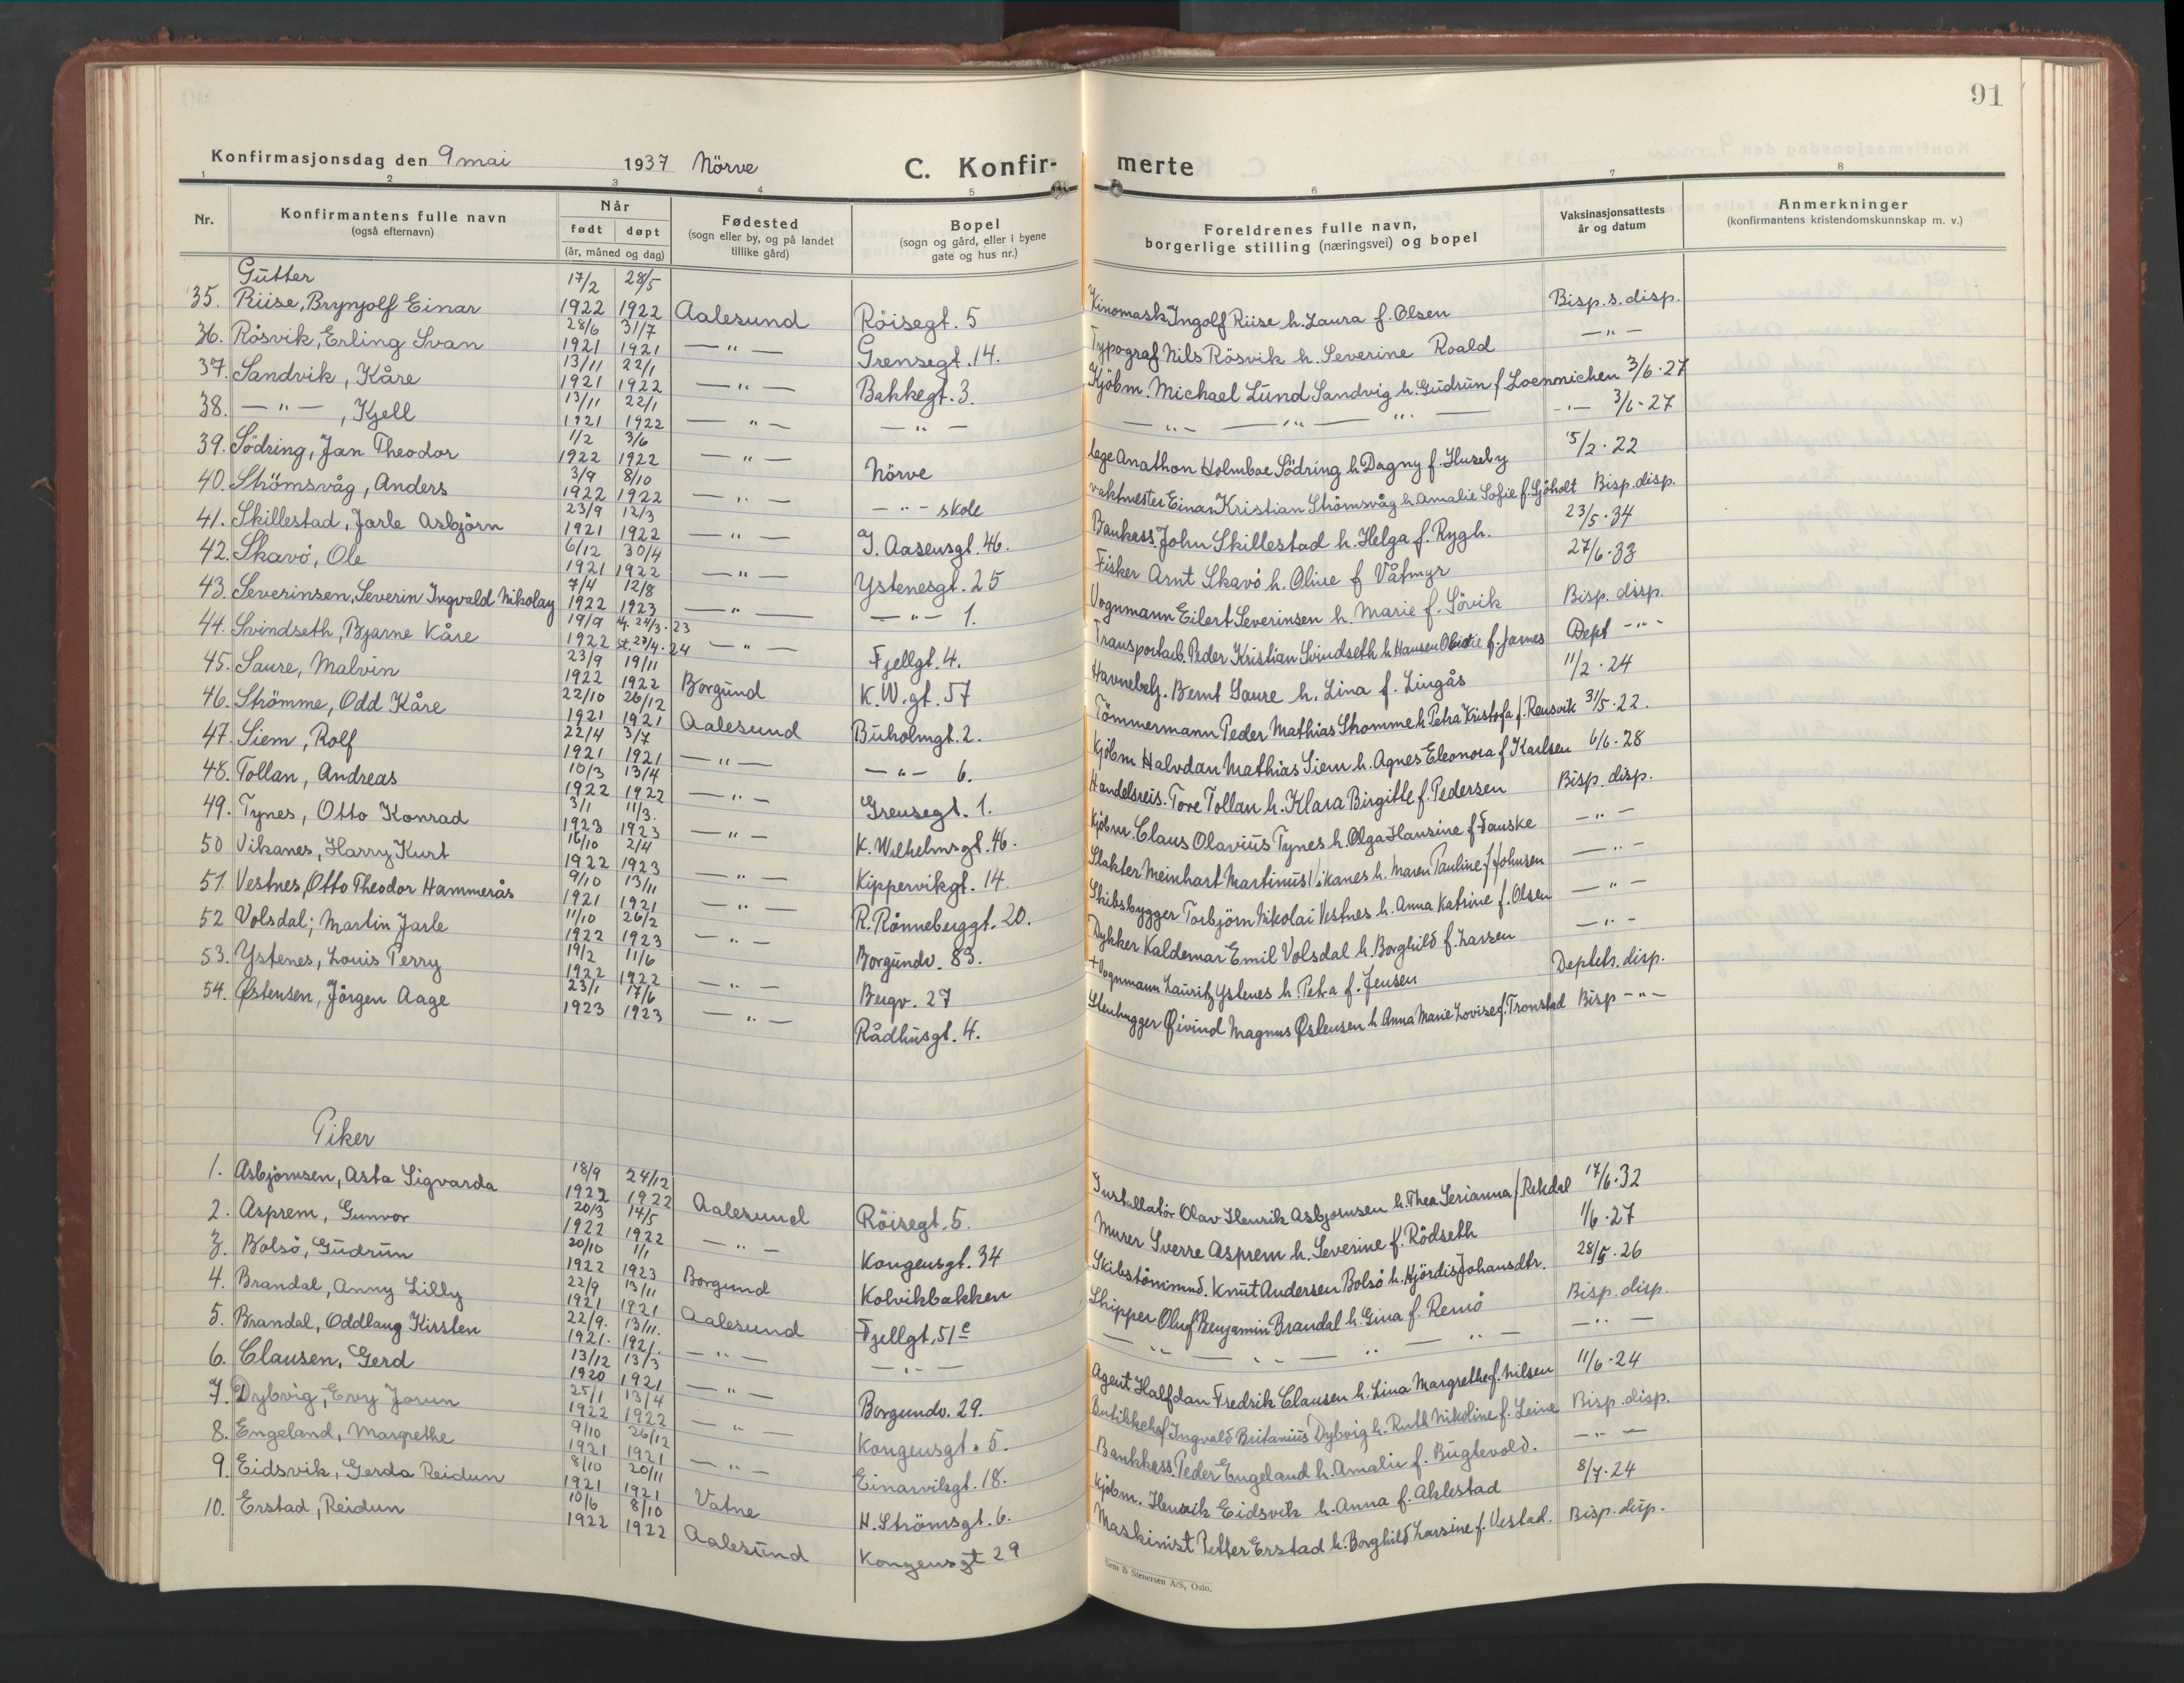 91
Konfirmasjonsdag den 9 mai 1937 Nörve C. Konfir- merte
1 2 3 4 5 6 7 8
Nr. Konfirmantens fulle navn (også efternavn) Når født døpt (år, måned og dag) Fødested (sogn eller by, og på landet tillike gård) Bopel (sogn og gård, eller i byene gate og hus nr.) Foreldrenes fulle navn, borgerlige stilling (næringsvei) og bopel Vaksinasjonsattests år og datum Anmerkninger (konfirmantens kristendomskunnskap m. v.)
Gutter
35. Riise, Brynjolf Einar 17/2 1922 28/5 1922 Aalesund Röisegt. 5 Kinomask. Ingolf Riise h. Laura f. Olsen Bisp. s. disp.
36. Rösvik, Erling Svan 28/6 1921 31/7 1921 — " — Grensegt. 14. Typograf Nils Rösvik h. Severine Roald — " —
37. Sandvik, Kåre 13/11 1921 22/1 1922 — " — Bakkegt. 3. Kjöbm. Michael Lund Sandvig h. Gudrun f. Loennichen 3/6·27
38. — " — , Kjell 13/11 1921 22/1 1922 — " — — " — — " — — " — — " — - " - 3/6·27
39. Södring, Jan Theodor 1/2 1922 3/6 1922 — " — Nörve Lege Anathon Holmboe Södring h. Dagny f. Huseby 15/2·22
40. Strömsvåg, Anders 3/9 1922 8/10 1922 — " — — " — skole vaktmester Einar Kristian Strömsvåg h. Amalie Sofie f. Sjöholt Bisp. disp.
41. Skillestad, Jarle Asbjörn 23/9 1921 12/3 1922 — " — I. Aasensgt. 46. Bankass. John Skillestad h. Helga f. Rygh. 23/5·34
42. Skavö, Ole 6/12 1921 30/4 1922 — " — Ystenesgt. 25 Fisker Arnt Skavö h. Oline f Våtmyr 27/6·33
43. Severinsen, Severin Ingvald Nikolay 7/4 1922 12/8 1923 — " — — " — 1. Vognmann Eilert Severinsen h. Marie f. Sövik Bisp. disp.
44. Svindseth, Bjarne Kåre 19/9 1922 hj. 24/3·23 st. 27/4·24 — " — Fjellgt. 4. Transportarb. Peder Kristian Svindseth h. Hansen f. James Dept - " -
45. Saure, Malvin 23/9 1922 19/11 1922 Borgund K.W.gt. 57 Havnebetj. Bernt Saure h. Lina f. Lingås 11/2·24
46. Strömme, Odd Kåre 22/10 1921 26/12 1921 Aalesund Buholmgt. 2. Tömmermann Peder Mathias Stromme h. Petra Kristofa f. Rensvik 31/5·22.
47. Siem, Rolf 22/4 1921 3/7 1921 — " — — " — 6. Kjöbm Halvdan Mathias Siem h. Agnes Eleonora f. Karlsen 6/6·28
48. Tollan, Andreas 10/3 1922 13/4 1922 — " — Grensegt. 1. Handelsreis. Tore Tollan h. Klara Birgitte f. Pedersen Bisp. disp.
49. Tynes, Otto Konrad 3/1 1923 11/3. 1923 — " — K. Wilhelmsgt. 46. Kjöbm. Claus Olavius Tynes h. Olga Hansine f. Fauske — " —
50 Vikanes, Harry Kurt 16/10 1922 2/4 1923 — " — Kippervikgt. 14. Slakter Meinhart Martinus Vikanes h. Maren Pauline f. Johnsen — " —
51. Vestnes, Otto Theodor Hammerås 9/10 1921 13/11 1921 — " — R. Rönneberggt. 20. Skibsbygger Torbjörn Nikolai Vestnes h. Anna Katrine f. Olsen — " —
52 Volsdal; Martin Jarle 11/10 1922 26/2 1923 — " — Borgundv. 83. Dykker Kaldemar Emil Volsdal h. Borghild f. Larsen — " —
53. Ystenes, Louis Perry 19/2 1922 11/6 1922 — " — Bergv. 27 + Vognmann Lauritz Ystenes h. Petra f. Jensen Deptets. disp.
54. Østensen, Jörgen Aage 23/1 1923 17/6 1923 — " — Rådhusgt. 4. Stenhugger Øivind Magnus Østensen h. Anna Marie Lovise f. Tronstad Bisp — " —
Piker
1. Asbjornsen, Asta Sigvarda 18/9 1922 24/12 1922 Aalesund Röisegt. 5. Installatör Olav Henrik Asbjornsen h. Thea Serianna f. Rekdal 17/6·32
2. Asprem, Gunvor 20/3 1922 14/5 1922 — " — Kongensgt. 34 Murer Sverre Asprem h. Severine f. Rödseth 1/6·27
3. Bolsö, Gudrun 20/10 1922 1/1 1923 Borgund Kolvikbakken Skibstömmd. Knut Andersen Bolsö h. Hjördis Johansdtr. 28/5·26
4. Brandal, Anny Lilly 22/9 1921 13/11 1921 Aalesund Fjellgt. 51c Skipper Oluf Benjamin Brandal h. Gina f. Remö Bisp. disp.
5. Brandal, Oddlaug Kirsten 22/9. 1921. 13/11. 1921. — " — — " — — " — — " — — " — — " —
6. Clausen, Gerd 13/12 1920 13/3 1921 — " — Borgundv. 29. Agent Halfdan Fredrik Clausen h. Lina Margrethe f. Nilsen 11/6·24
7. Dybvig, Evy Jorun 25/1 1922 13/4 1922 — " — Kongensgt. 5. Butikkchef Ingvald Britanius Dybvig h. Ruth Nikoline f. Leine Bisp. disp.
8. Engeland, Margrethe 9/10 1921 26/12 1921 — " — Einarvikgt. 18. Bankkass. Peder Engeland h. Amalie f. Bugtevold. — " —
9. Eidsvik, Gerda Reidun 8/10 1921 20/11 1921 Vatne H. Strömsgt. 6. Kjöbm. Henrik Eidsvik h. Anna f. Aklestad 8/7·24
10. Erstad, Reidun 10/6 1922 8/10 1922 Aalesund Kongensgt 29 Maskinist Petter Erstad h. Borghild Larsine f. Vestad. Bisp. disp.
Sem & Stenersen A/S, Oslo.